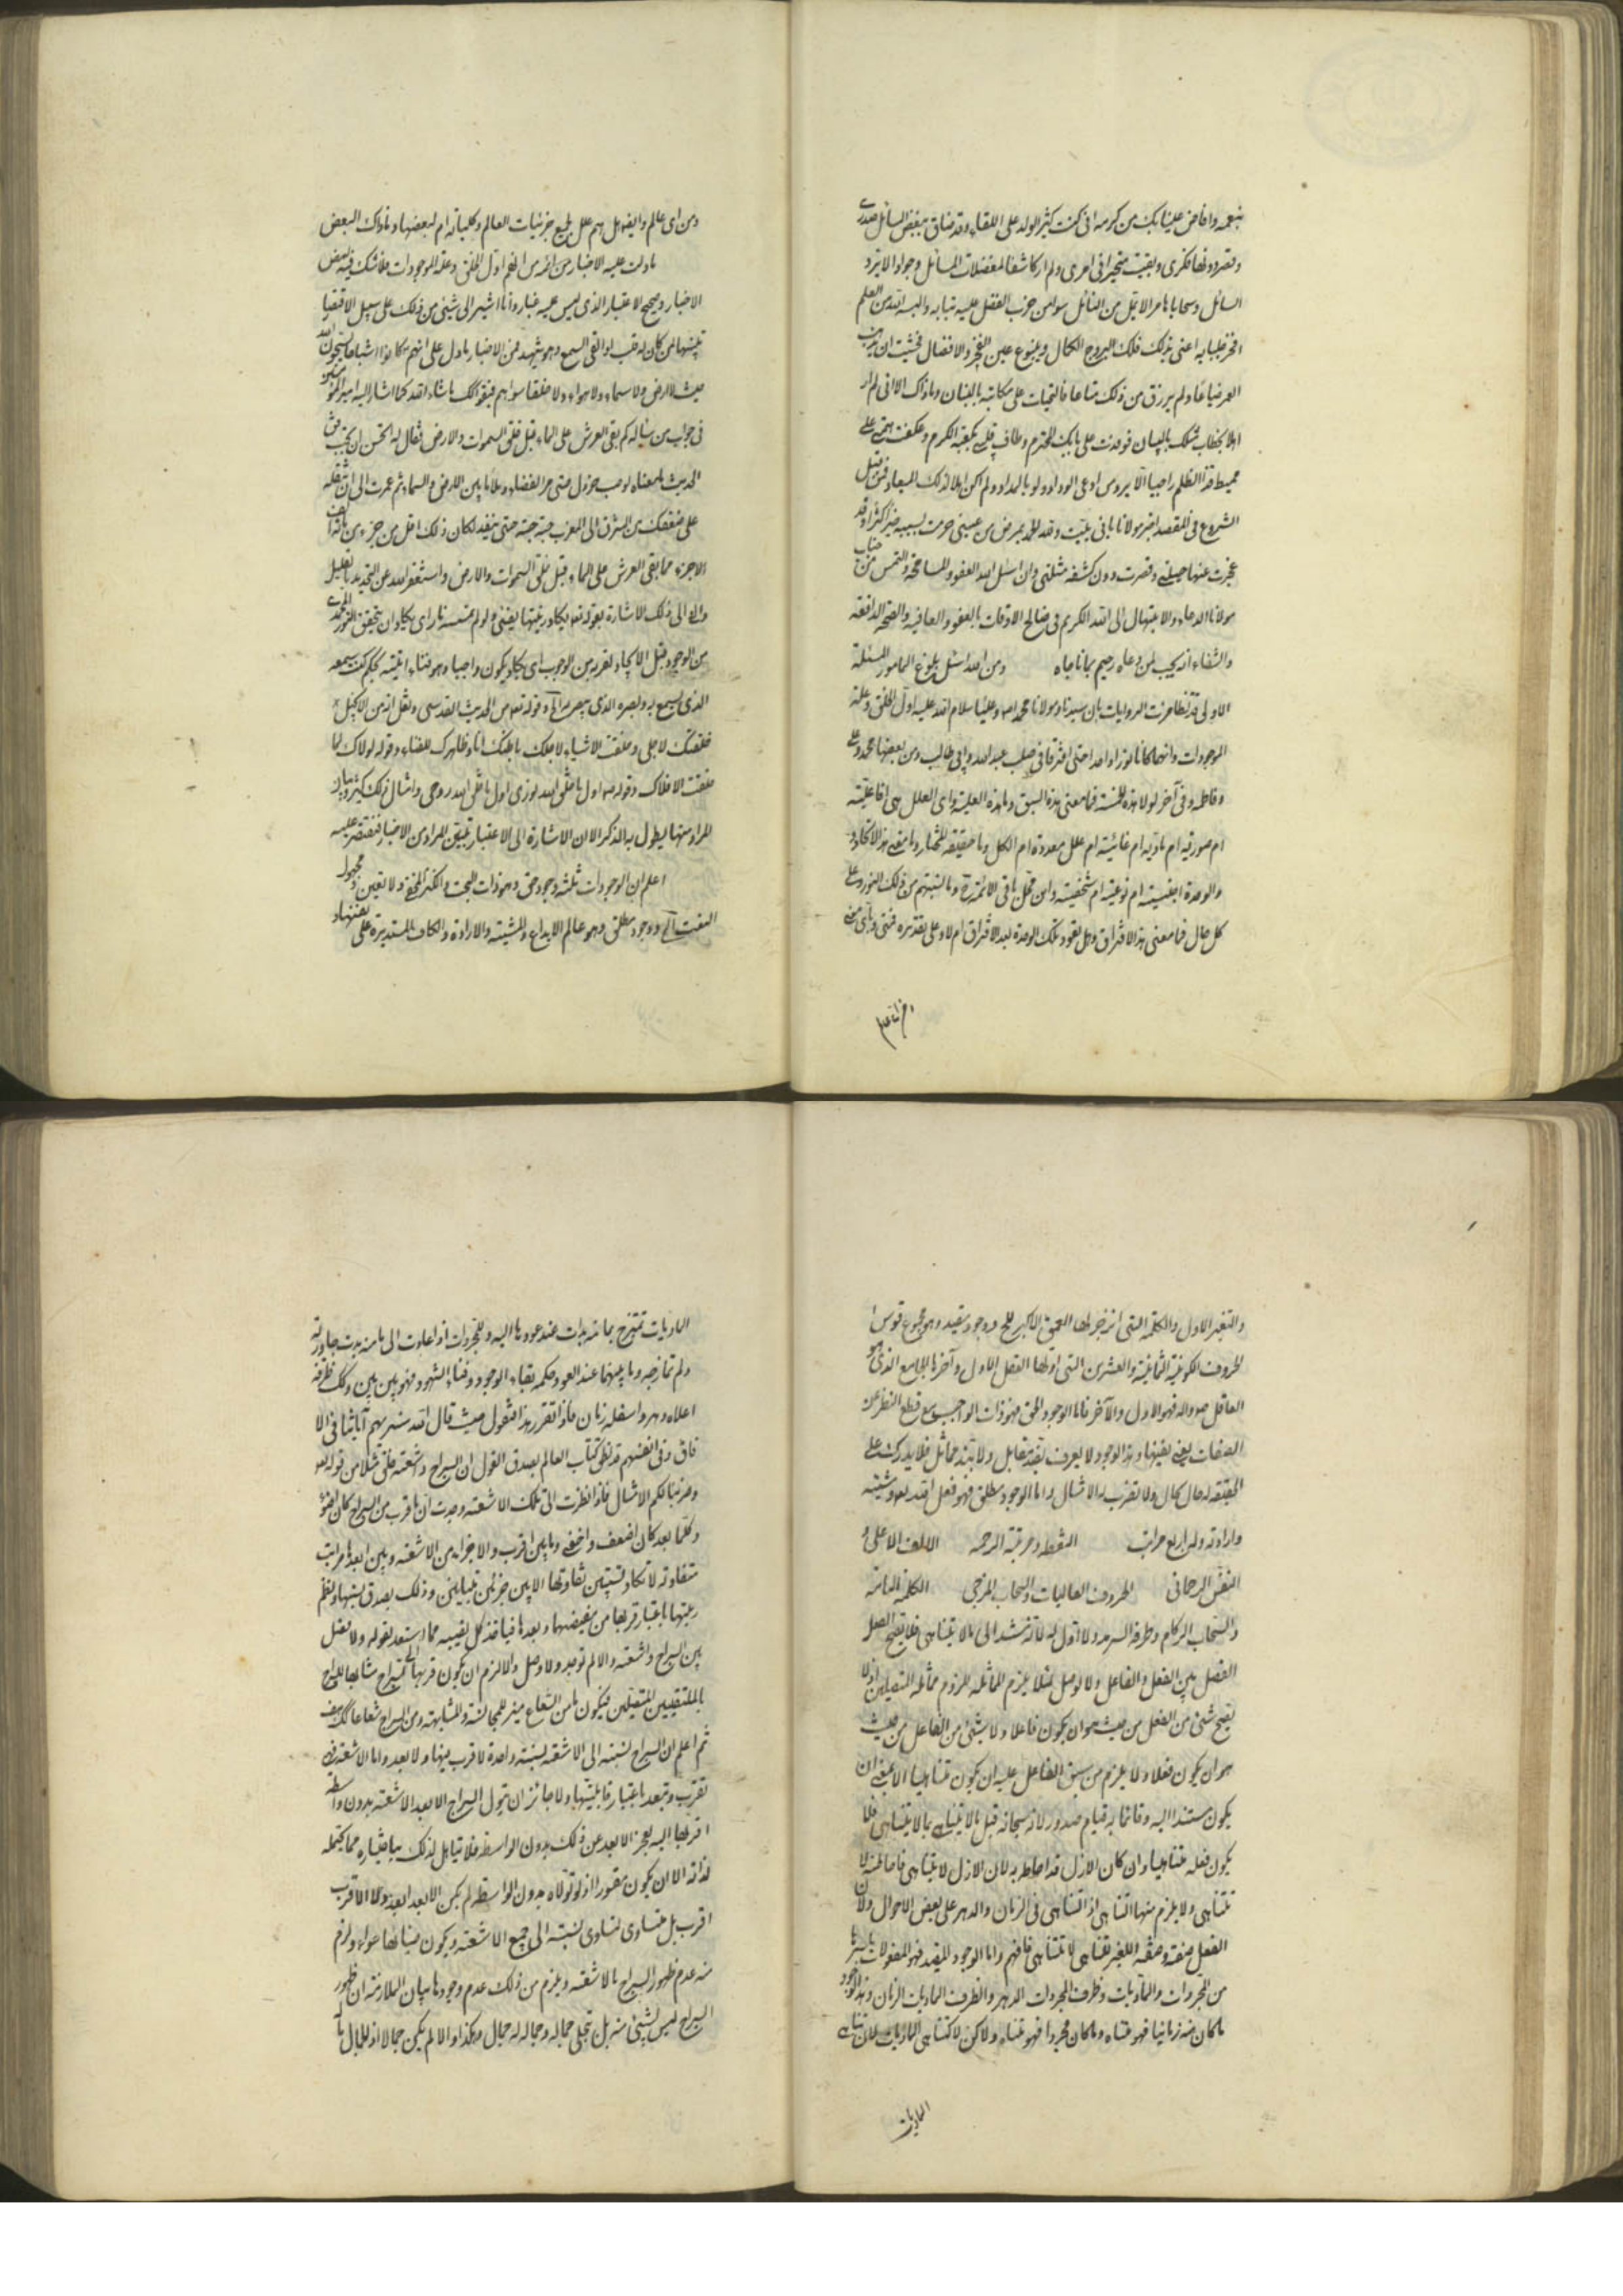 بنعمه وافاض علينا بك من كرمه انى كنت كثير الوله على اللقاء وقد ضاق ببعض المسائل صدرى
وتصرد فيها فكرى وبقيت متحيرا فى امرى ولم ار كاشفا لمعضلات المسائل وجوادا لا يرد
السائل وسحابا هامرا لا يقل من النائل سوا من ضرب الفضل عليه ثيابه والبسه الله من العلم
افخر جلبابه اعنى بذلك فلك البروج الكمال وينبوع عين الفخر والافضال فخشيت ان يذهب
العمر ضياعا ولم يرزق من ذلك متاعا فالتجأت على مكاتبته بالبنان وما ذلك الا انى لم ار
اهلا لخطاب مثلك باللسان فوفدت على بابك المحترم وطاف قلبى بكعبة الكرم وعكفت بهمتى على
الشروع فى المقصد اخبر مولانا بانى بليت ولله الحمد بمرض من عينى حرمت بسببه خيرا كثيرا وقد
عجزت عنها حيلتى وقصرت دون كشفه مشلتى وان اسئل الله العفو والمسامحة والتمس من جناب
مولانا الدعاء والابتهال الى الله الكريم فى صالح الاوقات بالعفو والعافية والصحة الدافعة
والشفاء انه يجيب لمن دعاه رحيم بمن ناجاه ومن الله اسئل بلوغ المامول المسئلة
الاولى قد تظاهرت الروايات بان سيدنا ومولانا محمد اص وعليا سلام الله عليه اول الخلق وعلة
الموجودات وانهما كانا نورا واحدا حتى افترقا فى صلب عبد الله وابى طالب وفى بعضها محمد وعلى
وفاطمه وفى آخر لولا هذه الخمسة فما معنى هذه السبق وما هذه العلية واى العلل هى افاعلية
ام صورية ام مادية ام غائية ام علل معدودة ام الكل وما حقيقة المختار وما معنى هذا الاتحاد و
والوحدة اجنسية ام نوعية ام شخصية واين محل باقى الائمة ع وما نسبتهم من ذلك النور وعلى
كل حال فما معنى هذا الافتراق وهل تعود تلك الوحدة بعد الافتراق ام لا وعلى تقديره فمتى وباى معنى
ومن اى عالم وايضا هل هم علل لجميع جزئيات العالم وكلياته ام لبعضها وما ذلك البعض
ما دلت عليه الاخبار من انهم اول الخلق وعلة الموجودات فلا شك فيه لبعض
الاخبار وصحيح الاعتبار الذى ليس عليه غبار وانا اشير الى شيئ من ذلك على سبيل الاقتضا
تنبيها لمن كان له قلب او القى السمع وهو شهيد فمن الاخبار ما دل على انهم كانوا اشباحا يسبحون الله
حيث لا ارض ولا سماء ولا هواء ولا خلقا سواهم فبقوا كك ما شاء الله كما اشار اليه امير المؤمنين
فى جواب من سأله كم بقى العرش على الماء قبل خلق السموات والارض فقال له اتحسن ان تحسب فقال
الحديث ما معناه لو صب خردل حتى سد الفضاء وملأ ما بين الارض والسماء ثم عمرت الى ان تنقله
على ضعفك من المشرق الى المغرب حبة حبة حتى ينفد لكان ذلك اقل من جزء من مائة الف
الاجزاء مما بقى العرش على الماء قبل خلق السموات والارض واستغفر الله عن التحديد بالقليل
والى ذلك الاشارة بقوله تعا يكاد زيتها يضئ ولو لم تمسسه نار اى يكاد ان يتحقق النور المحمدى
من الوجود قبل الايجاد لقربه من الوجوب اى يكاد يكون واجبا
الذى يسمع به وبصره الذى يبصر به الخ وقوله تعا من الحديث القدسى ونقل انه من الانجيل
خلقتك لاجلى وخلقت الاشياء لاجلك باطنك انا وظاهرك للفناء وقوله لولاك لما
خلقت الافلاك وقوله ص اول ما خلق الله نورى اول ما خلق الله روحى وامثال ذلك كثير وبيان
المراد منها يطول به الذكر الا ان الاشارة الى الاعتبار تبين المراد من الاخبار فنقتصر عليه
اعلم ان الوجودات ثلثة وجود حق وهو ذات البحت والكنز المخفى ولا تعين ومجهول
النعت الخ ووجود مطلق وهو عالم الابداع والمشية والارادة والكاف المستديرة على نفسها و
والتعين الاول والكلمة التى انزجر لها العمق الاكبر الخ ووجود مقيد وهو مجموع قوس ا
لحروف الكونية الثمانية والعشرين التى اولها العقل الاول وآخرها الجامع الذى هو
العاقل ص واله فهو الاول والآخر فاما الوجود الحق فهو ذات الواجب مع قطع النظر عن
الصفات يعنى نفيها وهذا الوجود لا يعرف بضد مقابل ولا بند مماثل فلا يدرك على
الحقيقة له حال كمال ولا تضرب له الامثال واما الوجود مطلق فهو فعل الله تعا ومشيته
وارادته وله اربع مراتب النقطة ومرتبة الرحمة الالف الاعلى و
النفس الرحمانى الحروف العاليات والسحاب المزجى الكلمة التامة
والسحاب الركام وظرفه السرمد ولا اول له لانه مستند الى ما لا يتناهى فلا يصح الفصل
الفصل بين الفعل والفاعل ولا لوصل لئلا يلزم المماثلة للزوم مماثلة المتصلين اذ لا
يصح شئ من الفعل من حيث هو ان يكون فاعلا ولا شئ من الفاعل من حيث
هو ان يكون فعلا ولا يلزم من سبق الفاعل عليه ان يكون متناهيا الا بمعنى ان
يكون مستندا اليه وقائما به قيام صدور لانه سبحانه قبل ما لا يتناهى بما لا يتناهى فلا
يكون فعله متناهيا وان كان الازل قد احاط به لان الازل لا يتناهى فاحاطته لا
تتناهى ولا يلزم منها التناهى اذ التناهى فى الزمان والدهر على بعض الاحوال ولان
الفعل صفته وصفة الغير المتناهى لا تتناهى فافهم واما الوجود المقيد فهو المفعولات باسرها
من المجردات والماديات وظرف المجردات الدهر والظرف الماديات الزمان وهذا الوجود
ما كان منه زمانيا فهو متناه وما كان مجردا فهو متناه ولكن لا كتناهى الماديات لان تناهى
الماديات
الماديات تمتزج بما منه بدات عند عودها اليه والمجردات اذا عادت الى ما منه بدت جاورته
ولم تمازجه وما بينهما عند العود حكمه بقاء الوجود وفناء الشهود فهو بين بين وكك ظرفه
اعلاه دهر واسفله زمان فاذا تقرر هذا فنقول حيث قال الله سنريهم آياتنا فى الا
فاق وفى انفسهم قد نطق كتاب العالم بصدق القول ان السراج واشعته خلق مثلا من قوله تعا
وضربنا لكم الامثال فاذا نظرت الى تلك الاشعة وجدت ان ما قرب من السراج كان اضوء
وكلما بعد كان اضعف واخفى وما بين اقرب والاجزاء من الاشعة وبين ابعدها مراتب
متفاوتة لا تكاد
رتبتها باعتبار قربها من مفيضها وبعدها فياخذ كل نصيبه مما استعد لقوله ولا فصل
بين السراج واشعته والا لم توجد ولا وصل والا لزم ان يكون قربها الى السراج مشابها للسراج
بالملتقيين المتصلين فيكون ما من الشعاع منير للمجانسة والمشابهة ومن السراج شعاعا كك هف
ثم اعلم ان السراج نسبته الى الاشعة نسبته واحدة لا قرب فيها ولا بعد واما الاشعة فهى
تقرب وتبعد باعتبار قابليتها ولا جائز ان يتولى السراج الا بعد الاشعة بدون واسطة
اقربها اليه بعجز الابعد عن ذلك بدون الواسطة فلا تيأهل لذلك
لذاته الا ان يكون مقسورا اذ لو تولاه بدون الواسطة لم يكن الابعد ابعد ولا الاقرب
اقرب بل متساوى لتساوى نسبته الى جميع الاشعة ويكون ضيائها سواء ولزم
منه عدم ظهور السراج بالاشعة ويلزم من ذلك عدم وجودها بيان الملازمة ان ظهور
السراج ليس لشيئ منه بل تجلى جماله وجماله له جمال وهكذا والا لم يكن جمالا اذ الجمال ما